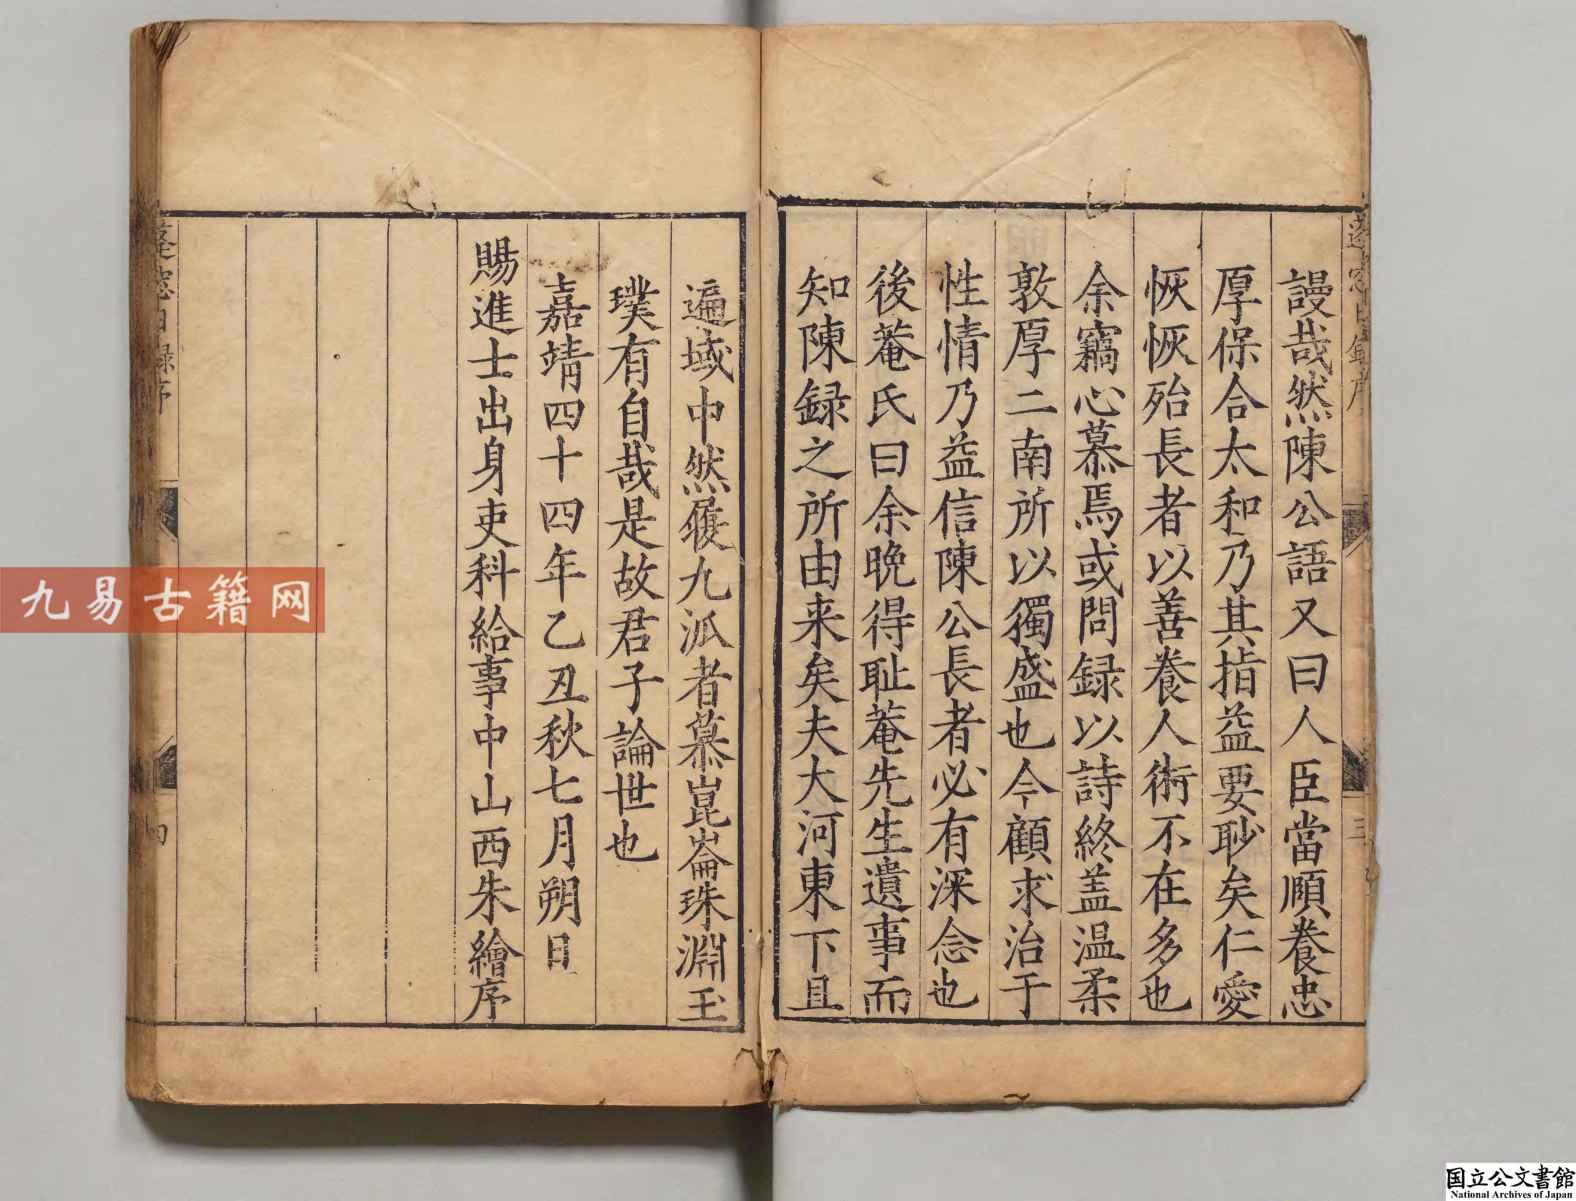 謾哉然陳公語又曰人臣當順養忠
厚保合太和乃其指益要眇矣仁愛
恢恢殆長者以善養人術不在多也
余竊心慕焉或問録以詩終盖温柔
敦厚二南所以獨盛也今顧求治于
性情乃益信陳公長者必有深念也
後菴氏曰余晚得耻菴先生遺事而
知陳録之所由来矣夫大河東下且
遍域中然履九派者慕崑崙珠淵玉
璞有自哉是故君子論世也
嘉靖四十四年乙丑秋七月朔日
賜進士出身吏科給事中山西朱繪序
四
九易古籍网
国立公文書館
National Archives of Japan